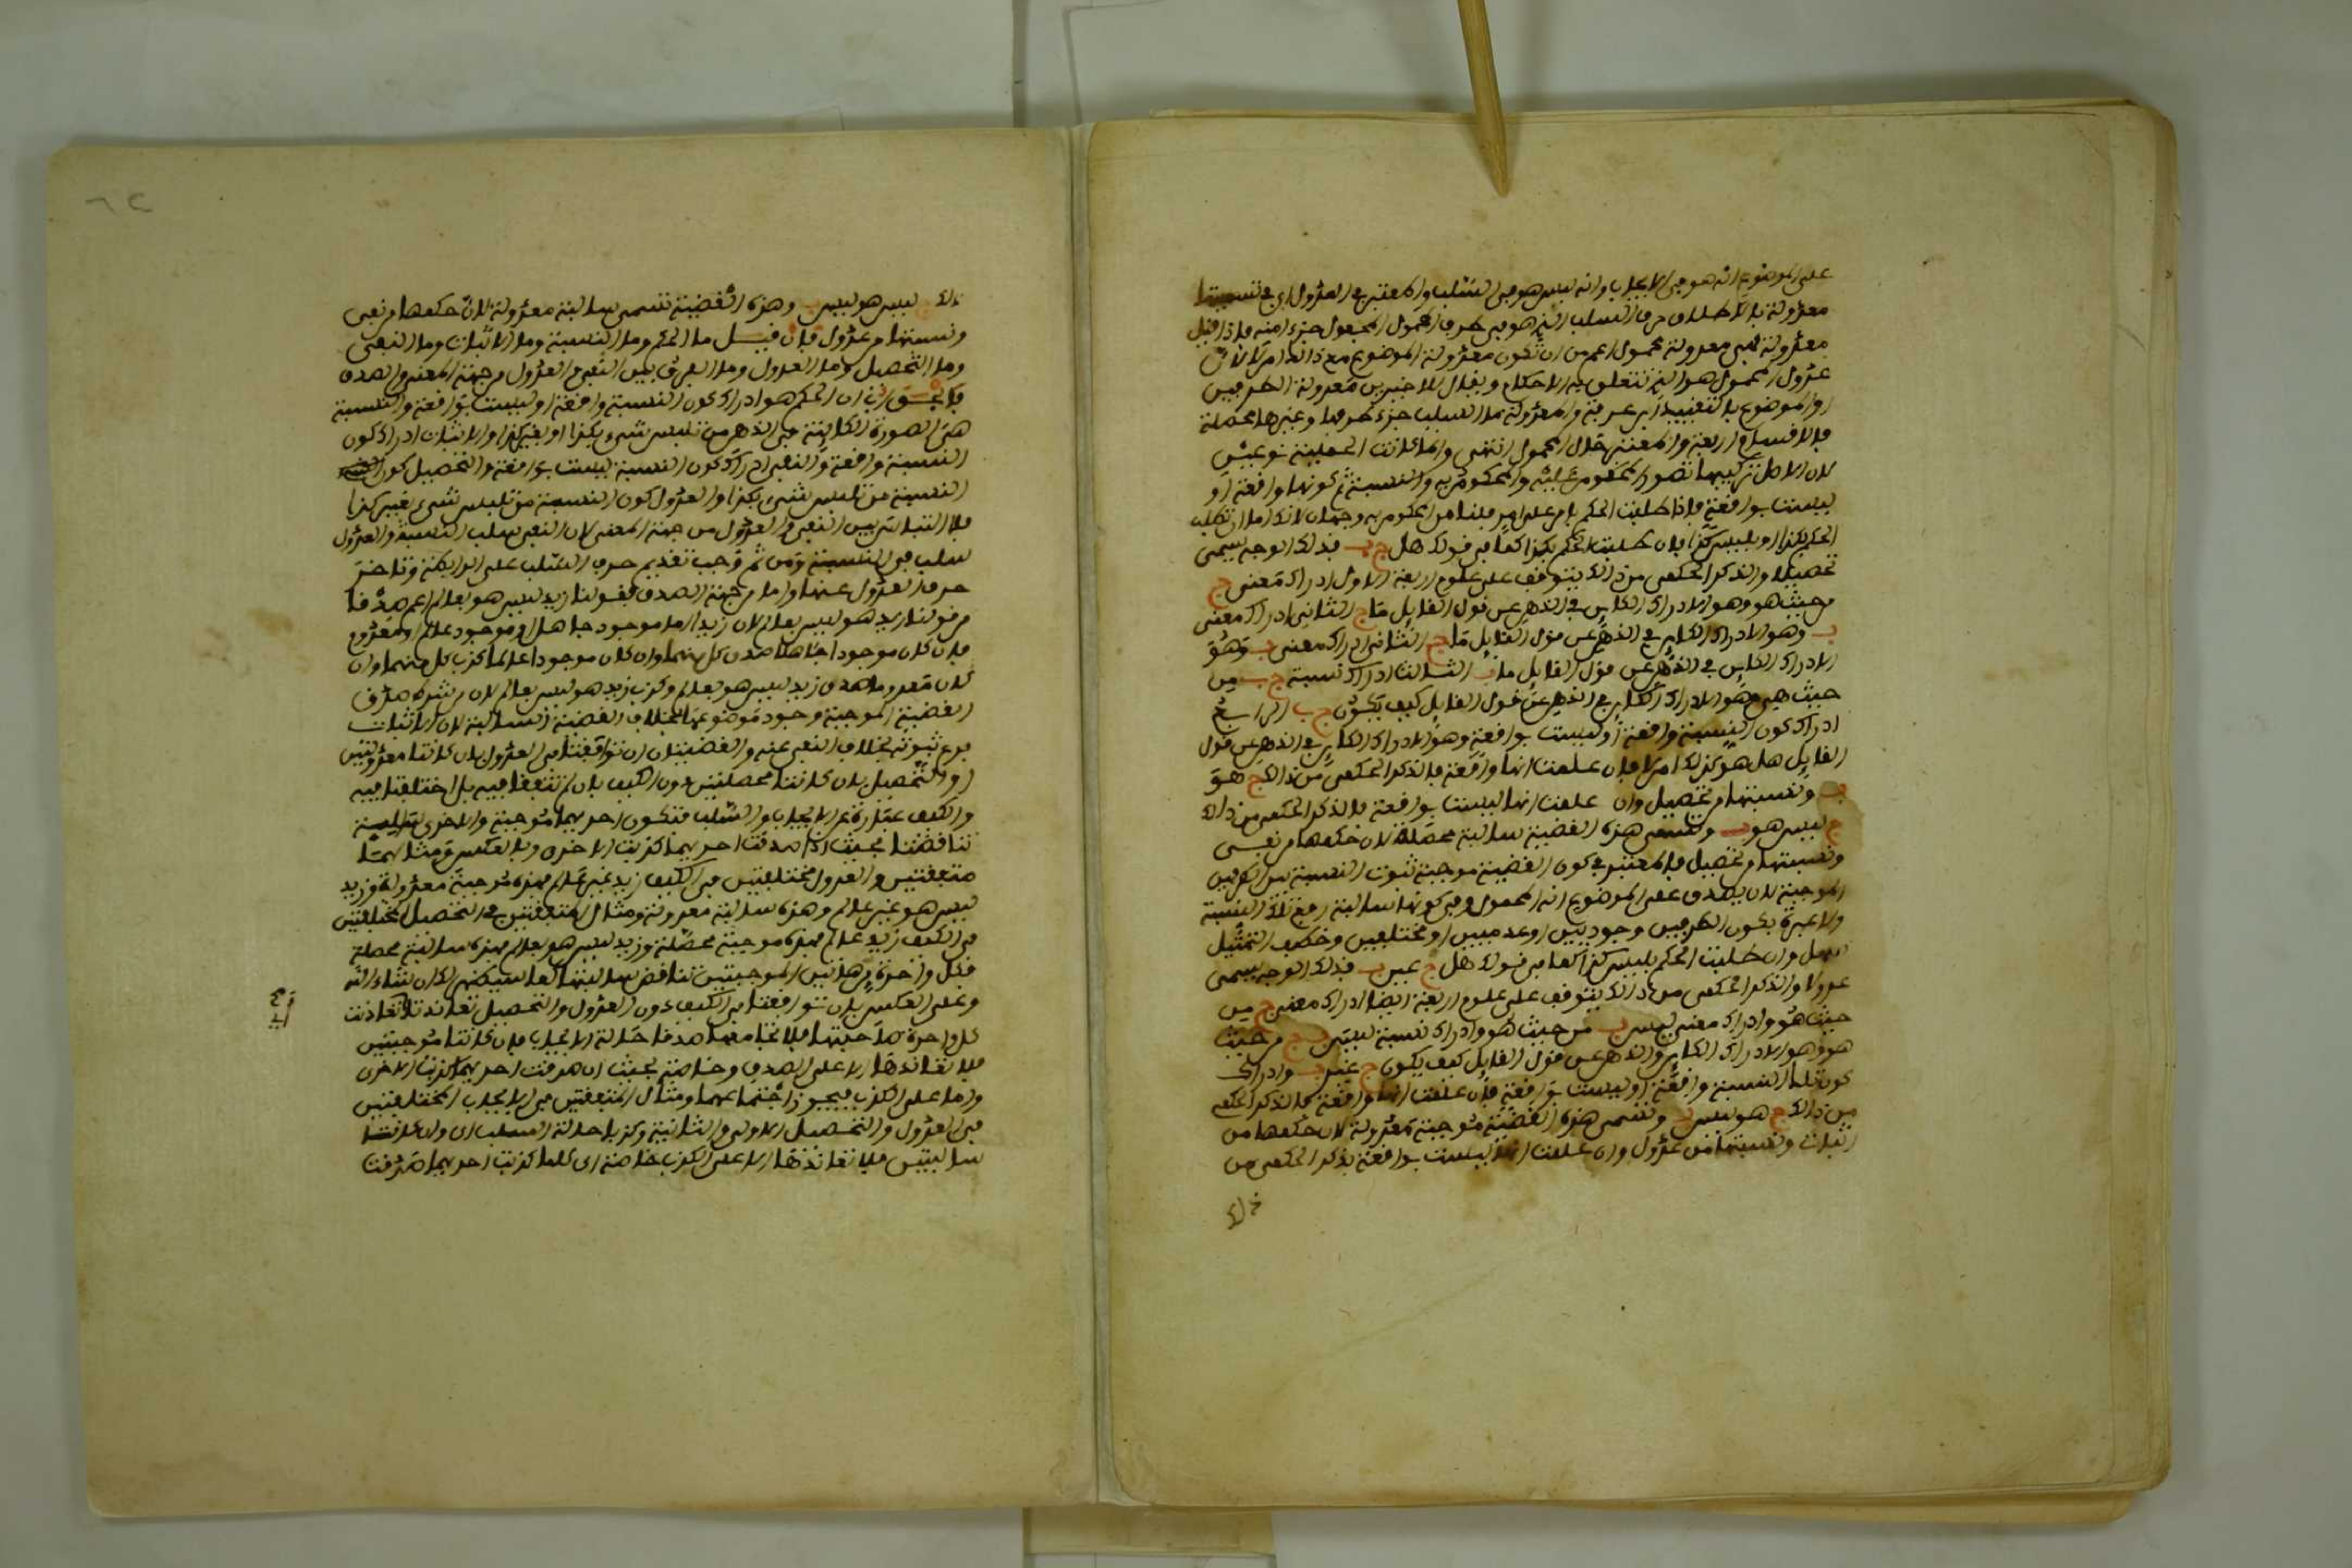 على الموضوع انه هو في الايجاب وانه ليس هو في السلب والمعتبر في العدول اي في تسميتها
معدولة بالاطلاق حرف السلب الذي هو في طرف المحمول المجعول جزءا منه فاذا قيل
معدولة فهي معدولة المحمول اعم من ان تكون معدولة الموضوع مع ذالك ام لا لان
عدول المحمول هو الذي تتعلق به الاحكام ويقال للاخيرين معدولة الطرفين
او الموضوع بالتقييد اي عرفية والمعدولة ما السلب جزء طرفها وغيرها محصلة
فالاقسام اربعة والمعتبر حال المحمول انتهى وانما كانت الحملية نوعين
لان الاصل تركيبها تصور المحكوم عليه والمحكوم به والنسبة ثم كونها واقعة او
ليست بواقعة فاذا طلبت الحكم بامر على امر فلنا من المحكوم به وجهان لانك اما ان تطلب
الحكم بكذا او بليس كذا فان طلبت الحكم بكذا كما في قولك هل ج ب فذلك الوجه يسمى
تحصيلا والذكر الحكمي من ذالك يتوقف على علوم اربعة الاول ادراك معنى ج
من حيث هو وهو الادراك الكاين في الذهن عن قول القايل ما ج الثاني ادراك معنى
ب وهو الادراك الكاين في الذهن عن قول القايل ما ج الثاني ادراك معنى ب وهو
الادراك الكاين في الذهن عن قول القايل ما ب الثالث ادراك نسبة ج ب من
حيث هي وهو الادراك الكاين في الذهن عن قول القايل كيف يكون ج ب الرابع
ادراك كون النسبة واقعة او ليست بواقعة وهو الادراك الكاين في الذهن عن قول
القايل هل هو كذلك ام لا فان علمت انها واقعة فالذكر الحكمي من ذالك ج هو
ب ونسبتها من تحصيل وان علمت انها ليست بواقعة فالذكر الحكمي من ذالك
ج ليس هو ب وتسمى هذه القضية سالبة محصلة لان حكمها من نفي
ونسبتها من تحصيل فالمعتبر في كون القضية موجبة ثبوت النسبة بين الطرفين
الموجبة لان يصدق على الموضوع انه المحمول وفي كونها سالبة رفع تلك النسبة
ولا عبرة بكون الطرفين وجوديين او عدميين او مختلفين وحكم التمثيل
سهل وان طلبت الحكم بليس كذا كما في قولك هل ج غير ب فذلك الوجه يسمى
عدولا والذكر الحكمي من ذالك يتوقف على علوم اربعة ايضا ادراك معنى ج من
حيث هو وادراك معنى ليس ب من حيث هو وادراك نسبة ليس ب ج من حيث
هو وهو الادراك الكاين في الذهن عن قول القايل كيف يكون ج غير ب وادراك
كون تلك النسبة واقعة او ليست بواقعة فان علمت انها واقعة فالذكر الحكمي
من ذالك ج هو ليس ب وتسمى هذه القضية موجبة معدولة لان حكمها من
اثبات ونسبتها من عدول وان علمت انها ليست بواقعة فذكر الحكمي من
ذلك
ذلك ج ليس هو ليس ب وهذه القضية تسمى سالبة معدولة لان حكمها من نفي
ونسبتها من عدول فان قيل ما الحكم وما النسبة وما الاثبات وما النفي
وما التحصيل وما العدول وما الفرق بين النفي والعدول من جهة المعنى والصدق
ان الحكم هو ادراك كون النسبة واقعة او ليست بواقعة والنسبة
هي الصورة الكاينة في الذهن من تلبس شيء بكذا او بغير كذا والاثبات ادراك كون
النسبة واقعة والنفي ادراك كون النسبة ليست بواقعة والتحصيل كون
النسبة من تلبس شيء بكذا والعدول كون النسبة من تلبس شيء بغير كذا
فالتباين بين النفي والعدول من جهة المعنى لان النفي سلب النسبة والعدول
سلب في النسبة ومن ثم وجب تقديم حرف السلب على الرابطة وتاخر
حرف العدول عنها واما من جهة الصدق فقولنا زيد ليس هو بعالم اعم صدقا
من قولنا زيد هو ليس بعالم لان زيدا اما موجود جاهل او موجود عالم او معدوم
فان كان موجودا جاهلا صدق كل منهما وان كان موجودا عالما كذب كل منهما وان
كان معدوما صدق زيد ليس هو بعالم وكذب زيد هو ليس بعالم لان من شرط صدق
القضية الموجبة وجود موضوعها بخلاف القضية السالبة لان الاثبات
فرع ثبوته بخلاف النفي عنه والقضيتان ان توافقتا في العدول بان كانتا معدولتين
او التحصيل بان كانتا محصلتين دون الكيف بان لم تتفقا فيه بل اختلفتا فيه
والكيف عبارة عن الايجاب والسلب فتكون احديهما موجبة والاخرى سالبة
تناقضتا بحيث اذا صدقت احديهما كذبت الاخرى وبالعكس ومثالهما
متفقتين في العدول مختلفتين في الكيف زيد غير عالم فهذه موجبة معدولة وزيد
ليس هو غير عالم وهذه سالبة معدولة ومثال المتفقتين في التحصيل المختلفتين
في الكيف زيد عالم فهذه موجبة محصلة وزيد ليس هو بعالم فهذه سالبة محصلة
فكل واحدة من هاتين الموجبتين تناقض سالبتها كما سيظهر لك ان شاء الله
وعلى العكس بان توافقتا في الكيف دون العدول والتحصيل تعاندتا فعاندت
كل واحدة صاحبتها فلا تجامعها صدقا حالة الايجاب فان كانتا موجبتين
فلا تعاندها الا على الصدق وخاصة بحيث ان صدقت احديهما كذبت الاخرى
واما على الكذب فيجوز اجتماعهما ومثال المتفقتين في الايجاب المختلفتين
في العدول والتحصيل الاولى والثانية وكذبا حالة السلب اي وان كانتا
سالبتين فلا تعاندها الا على الكذب خاصة اي كلما كذبت احديهما صدقت